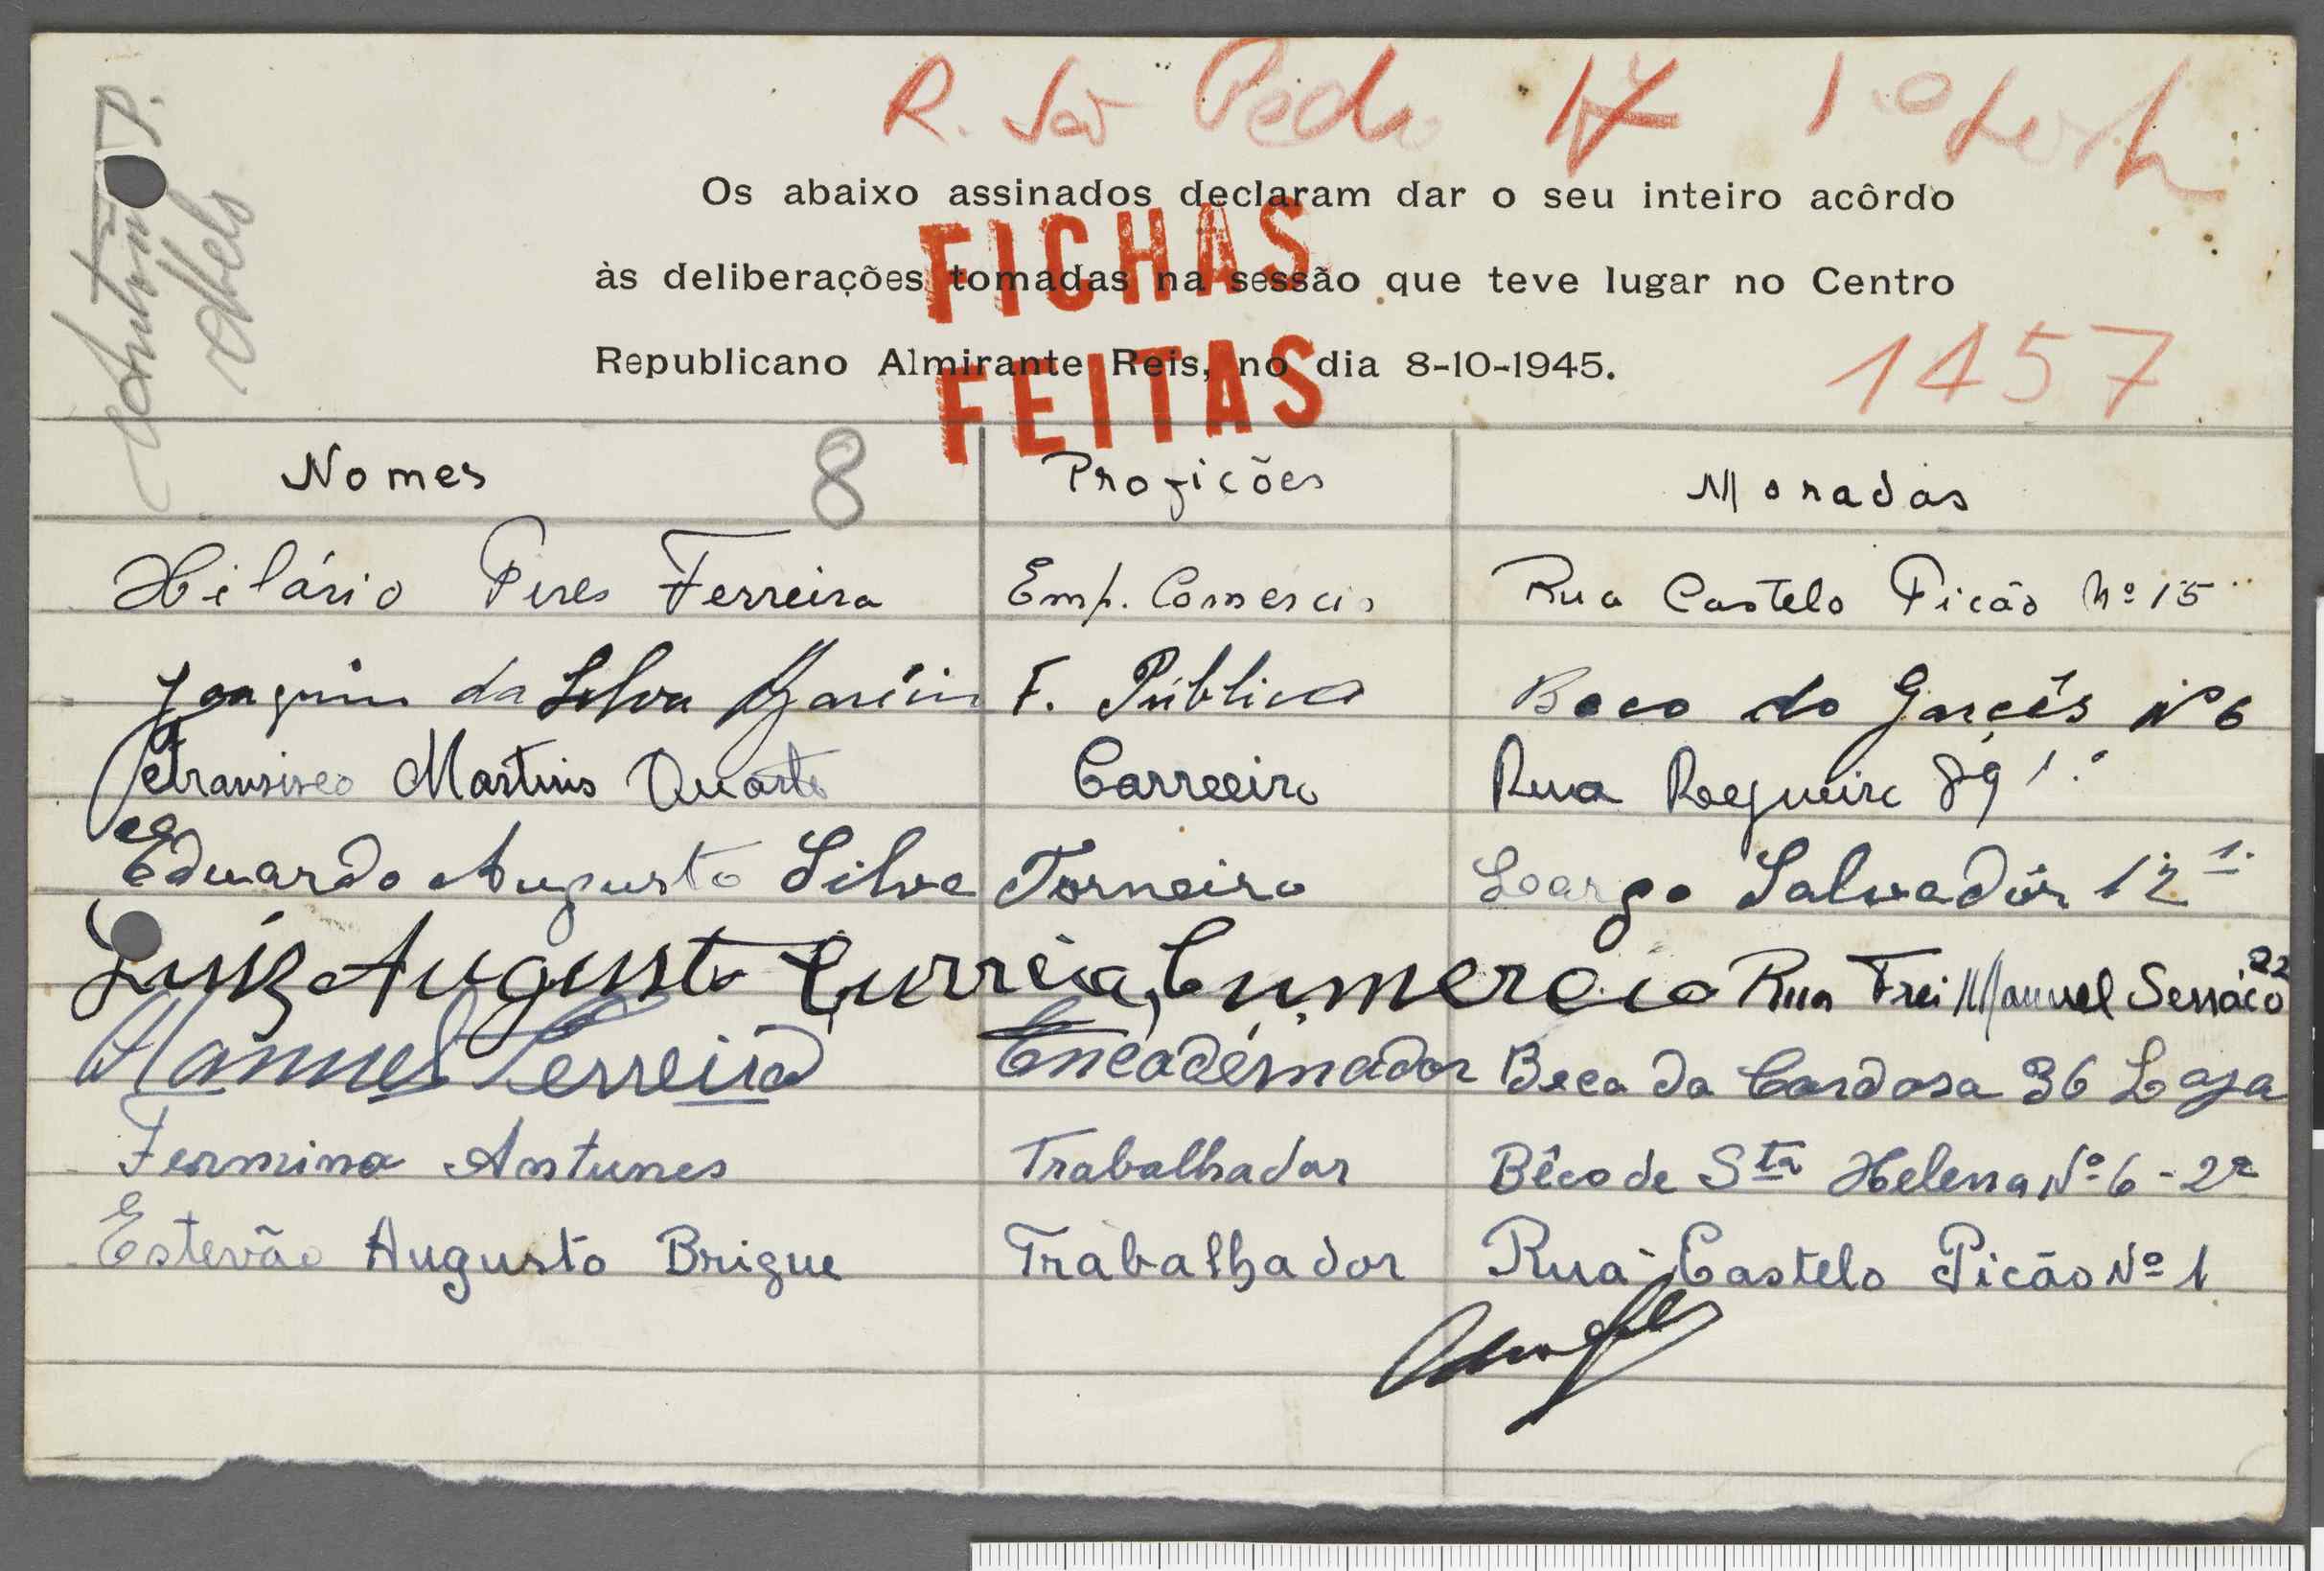 R. São Pedro 17 1.º
António P.
Os abaixo assinados declaram dar o seu inteiro acôrdo
às deliberações tomadas na sessão que teve lugar no Centro
Republicano Almirante Reis, no dia 8-10-1945.
FICHAS
FEITAS
1457
8
Nomes Profições Moradas
Hilário Peres Ferreira Emp. Comercio Rua Castelo Picão Nº 15
Joaquim da Silva F. Pública Beco do Garcês Nº 6
Fransisco Martins Duarte Carreeiro Rua Regueira 89 1.º
Eduardo Augusto Silva Torneiro Largo Salvador 12 1.
Luíz Augusto Curreia, Cumercio Rua Frei Manuel 22
Manuel Ferreira Encadernador Beca da Cardosa 36 Loja
Fermino Antunes Trabalhador Bêco de Sta Helena Nº 6 - 2º
Estevão Augusto Brigue Trabalhador Rua Castelo Picão Nº 1